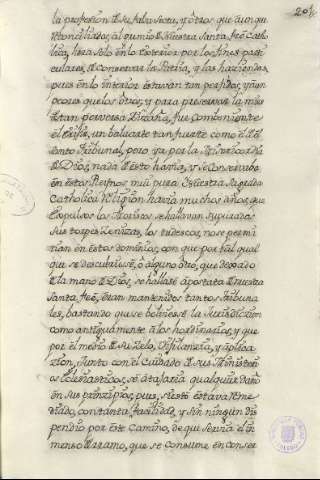 204
la profesion de su falsa secta, y otros que aunque
Reconciliados, al gremio de Nuestra Santa fee Catho
lica, hera solo en lo exterior por los fines parti
culares, de conservar la Patria, y las haciendas,
pues en lo interior estavan tan perfidos, y aun
peores que los otros, y para preservar la mies
de tan perversa Zizaña, fue combeniente
el erigir, un baluarte tan fuerte como el de el
Santo Tribunal, pero ya por la Misericordia
de Dios, nada de esto havia, y se conservaba
en estos Reynos mui pura Nuestra Sagrada
Catholica Religion havia muchos años, que
expulsos los Moriscos se hallavan sepultadas
sus torpes Zenizas, los Judescos, no se permi
tian en estos dominios, con que por tal qual
que se descubriese, ó alguno otro, que dexado
de la mano de Dios, se hallase apostata de nuestra
Santa feé, eran mantenidos tantos tribuna
les, bastando que se bolviese la Jurisdiccion
como antiguamente á los hordinarios, y que
por el medio de su Zelo, Vigilancia, y aplica
zion, junto con el Cuidado de sus Ministros
eclesiasticos, se atajaria qualquier daño
en sus prinzipios, pues, si esto estava reme
diado, con tanta facilidad, y sin ningun dis
pendio por este camino, de que servia el in
menso Erario, que se consume en conser